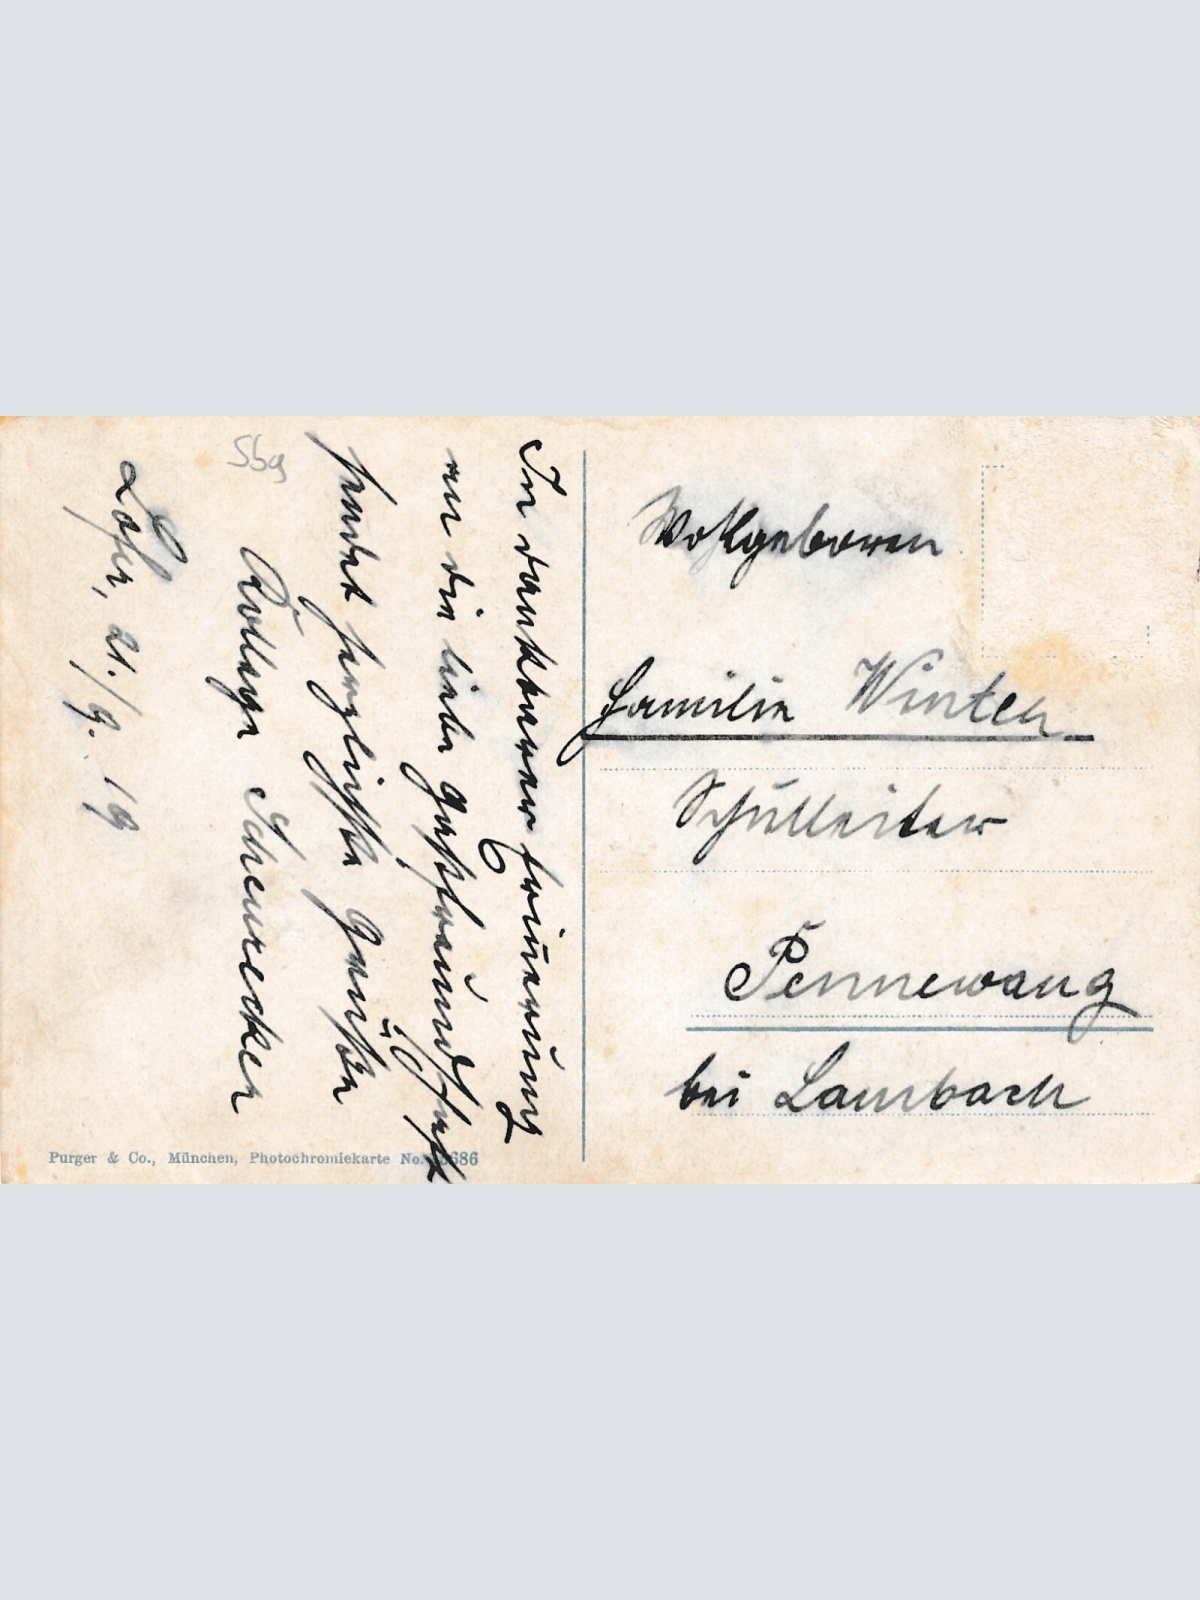 In dankbarer Erinnerung
an die liebe Gastfreundschaft
sendet herzlichste Grüße
Kollege Scheurecker
Lofer, 21./9. 19
Sbg
Wohlgeboren
Familie Winter
Schulleiter
Pennewang
bei Lambach
Purger & Co., München, Photochromiekarte No.